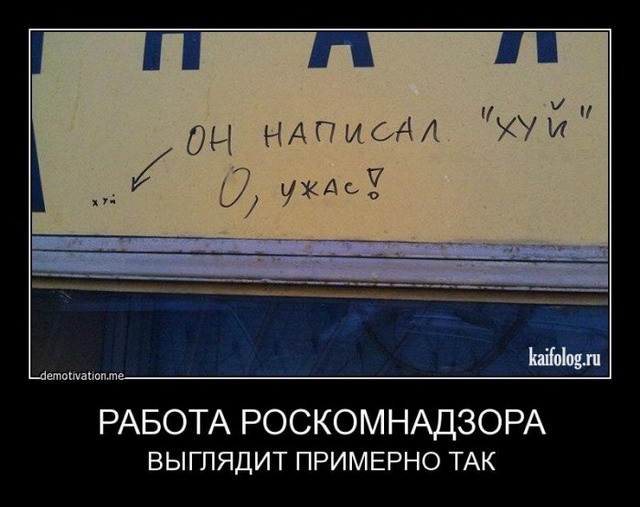 Н А Я
ОН НАПИСАЛ "ХУЙ"
О, УЖАС!
хуй
kaifolog.ru
demotivation.me
РАБОТА РОСКОМНАДЗОРА
ВЫГЛЯДИТ ПРИМЕРНО ТАК